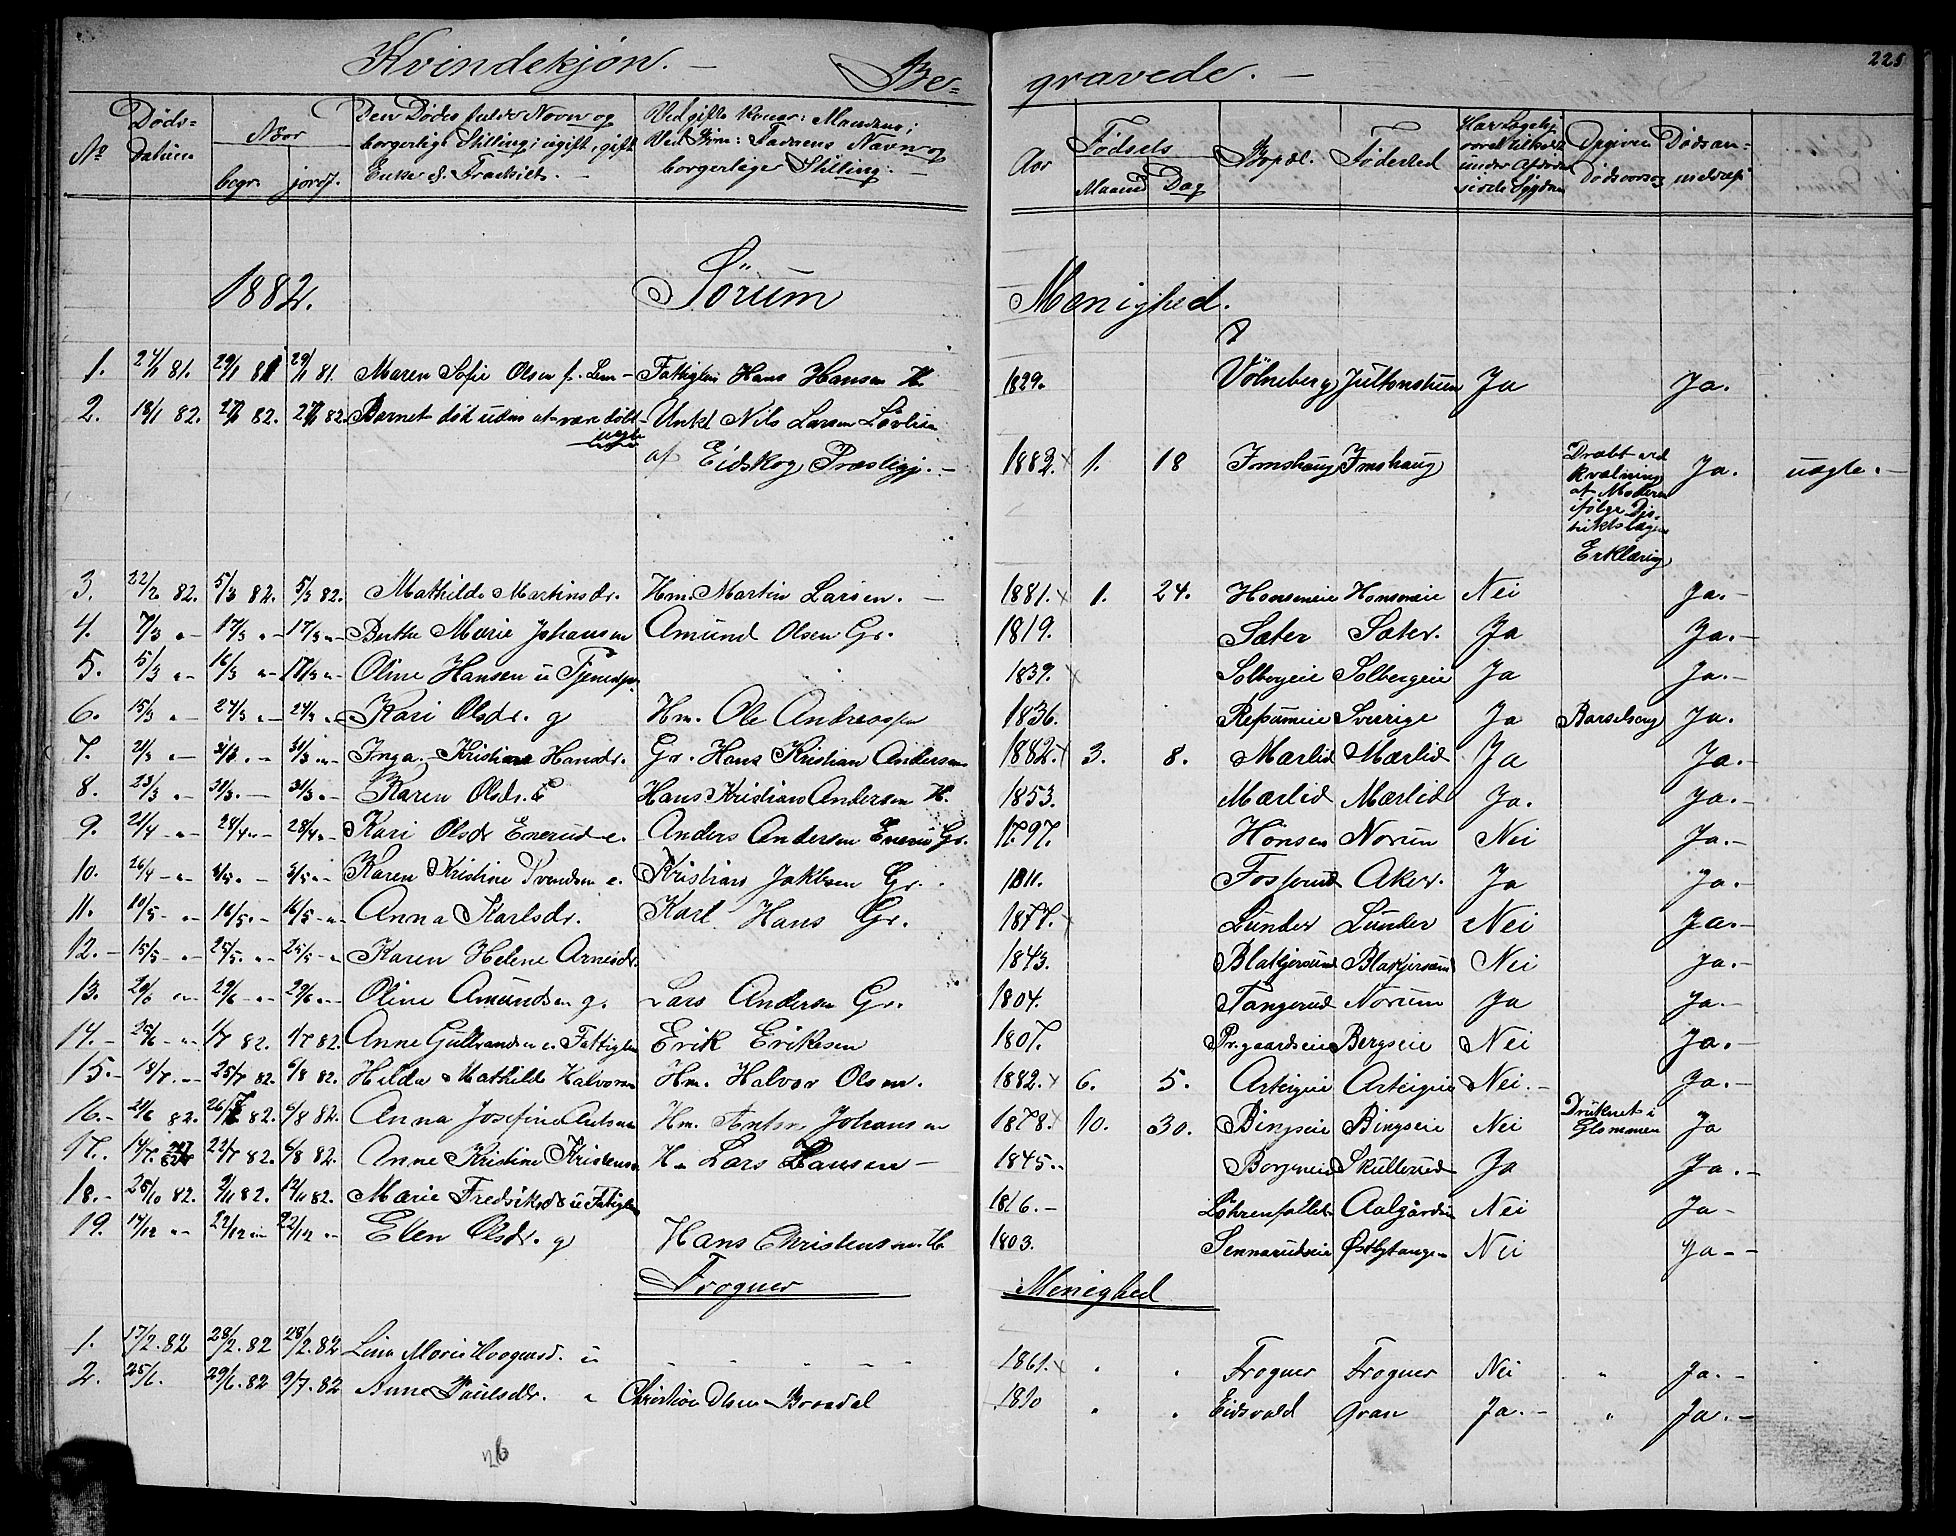 Kvindekjøn. — Be= gravede. — 225
No Døds= Datum Naar begr. jordf. Den Dødes fulde Navn og borgerlige Stilling; ugift, gift Enke f. Fraskilt. — Ved gifte Koner: Mandens; Ved Børn: Faderens Navn og borgerlige Stilling. — Aar Fødsels Maaned Dag Bopæl. Fødested Opgiven Dødsaarsag Dødsan= meldelse
1882. Sörum Menighed.
1. 81. 29/1 81 29/1 81. Maren Sofie Olsen f. Hans Hansen 1829. Völneberg Ja Ja.
2. 18/1 82. 27/1 82. 27/1 82. Barnet död uden at være döbt uægte Unkl Nils Larsen Lövlien
af Eidskog Præstigj. — 1882. 1. 18 Imshaug Imshaug Dræbt ved Kvælning af Moderen ifølge Distriktslægens Erklæring Ja. uægte. —
3. 22/2 82. 5/3 82. 5/3 82. Mathilde Martinsdr. Hm. Martin Larsen. — 1881. 1. 24. Honseneie Honseneie Nei Ja. —
4. 7/3 " — 17/3 " — 17/3 " — Berthe Marie Johansen Amund Olsen Gr. 1819. Sæter Sæter. Ja Ja. —
5. 5/3 " — 16/3 " — 17/3 " — Oline Hansen u 1839. Solbergeie Solbergeie Ja Ja. —
6. 15/3 " — 24/3 " — 24/3 " — Kari Olsdr. g Hm. Ole Andreassen 1836. Sverige Ja Barselseng Ja.
7. 21/3 " — 31/3 " — 31/3 " — Inga Kristiane Hansdr. Gr. Hans Kristian Andersen 1882. 3. 8. Mærlid Mærlid Ja Ja. —
8. 23/3 " — 31/3 " — 31/3 " — Karen Olsdr. Hans Kristian Andersen H. 1853. Mærlid Mærlid Ja. Ja. —
9. 21/4 " — 28/4 " — 28/4 " — Kari Olsdr Enerud e. Anders Andersen Gr. 1797. Hönsen Norum Nei Ja. —
10. 26/4 " — 3/5 " — 3/5 " — Karen Kristine Svendsen e. Kristian Jakobsen Gr. 1811. Fosserud Aker. Ja Ja. —
11. 10/5 " — 16/5 " — 16/5 " — Anna Karlsdr. Karl Hans Gr. 1877. Lunder Lunder Nei Ja. —
12. — 15/5 " — 25/5 " — 25/5 " — Karen Helene Arnesdr. 1843. Blakjersund Blakjersund Nei Ja. —
13. 20/6 " — 29/6 " — 29/6 " — Oline Amundsen g. Lars Andersen Gr. 1804. Tangerud Norum Ja Ja. —
14. — 25/6 " — 1/7 82. 1/7 82. Anne Gulbrandsen e. Fattiglem Erik Eriksen 1807. Pr.gaardseie Bergseie Nei Ja. —
15. — 18/7 " — 25/7 82. 6/8 82. Hilda Mathilde Halvorsen Hm. Halvor Olsen. 1882. 6. 5. Arteigeie Arteigeie Nei. — Ja. —
16. — 21/6 82. 26/7 82. 6/8 82. Anna Josefine Antonsen Hm. Anton Johansen 1878. 10. 30. Bingseie Bingseie Nei Druknet i Glommen Ja
17. 14/7 82 22/7 82. 6/8 82. Anne Kristine Kristensen Lars Hansen — 1845. Skullerud Ja Ja. —
18. — 25/10 82. 2/11 82. 12/11 82. Marie Fredriksdr u Fattiglem 1816. — Aalgården Nei Ja —
19. 14/12 " — 22/12 " — 22/12 " — Elen Olsdr. g Hans Christensen H. 1803. Sennerudseie Østbytangen Nei Ja — —
Frogner Menighed
1. 17/2 . 82 28/2 . 82 28/2 . 82 Lina Marie u 1861. " " Frogner Frogner Nei " Ja. —
2. 25/6. 29/6 . 82 9/7 . 82 Anne Paulsdr. Christian Olsen Braadal 1810 " " Eidsvold Gran Ja. — " Ja. —
26